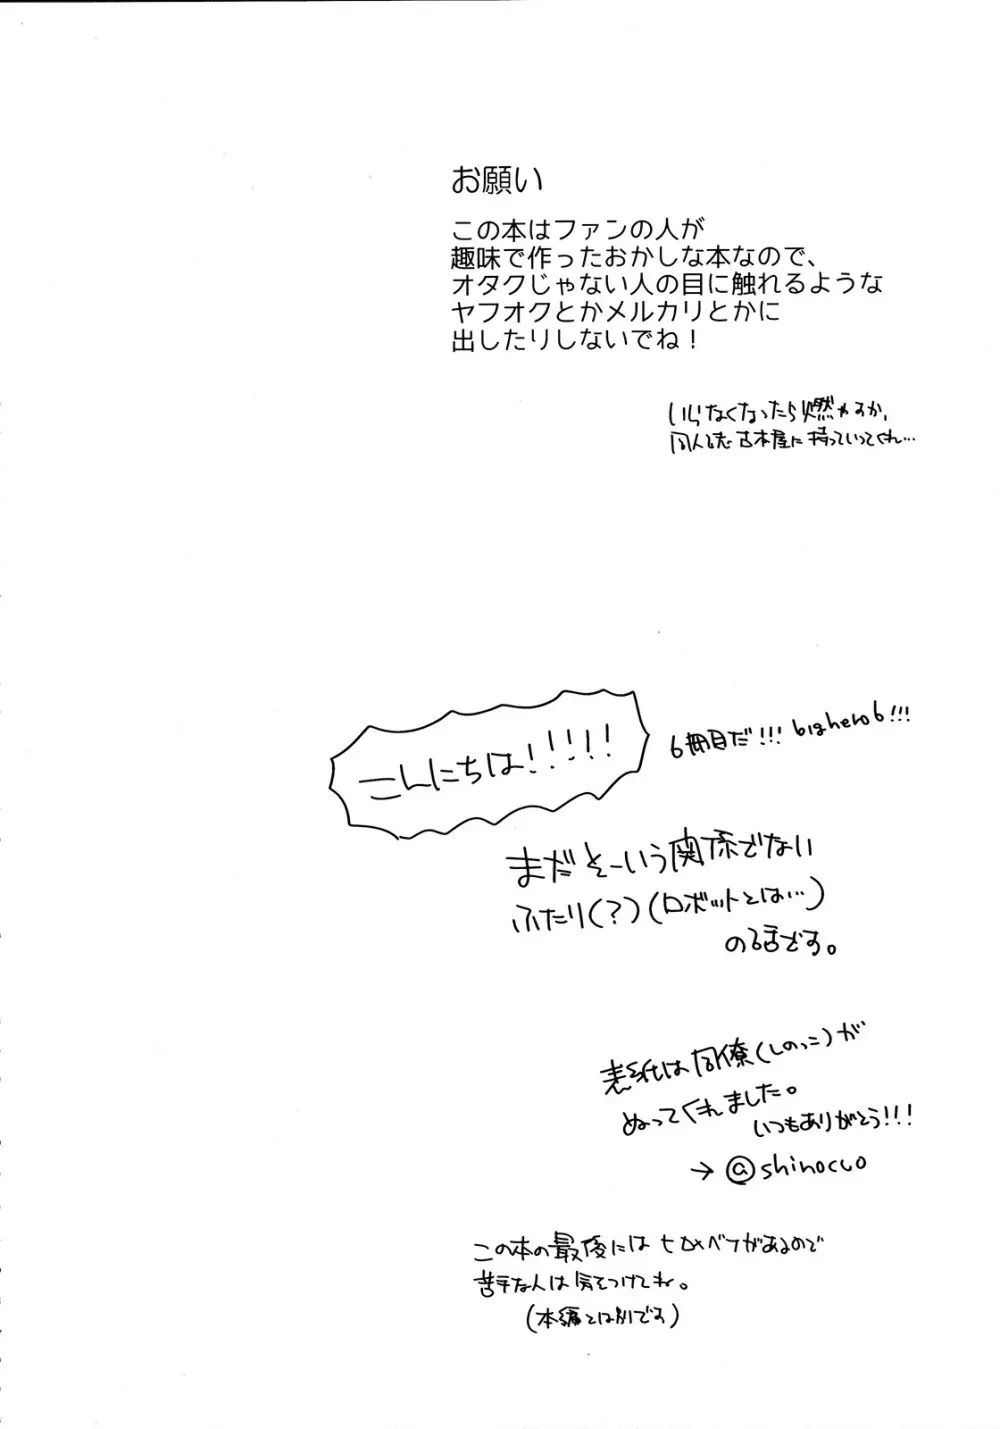 お願い
この本はファンの人が
趣味で作ったおかしな本なので、
オタクじゃない人の目に触れるような
ヤフオクとかメルカリとかに
出したりしないでね！
いらなくなったら燃やすか、
同人誌古本屋に持っていってくれ…
こんにちは!!!!!
6冊目だ!!! bighero6!!!
まだそーいう関係でない
ふたり(?)(ロボットとは…)
の話です。
表紙は同僚(しのっこ)が
ぬってくれました。
いつもありがとう!!!
→@shinocco
この本の最後にはヒロ×ベフがあるので
苦手な人は気をつけてね。
(本編とは別です)